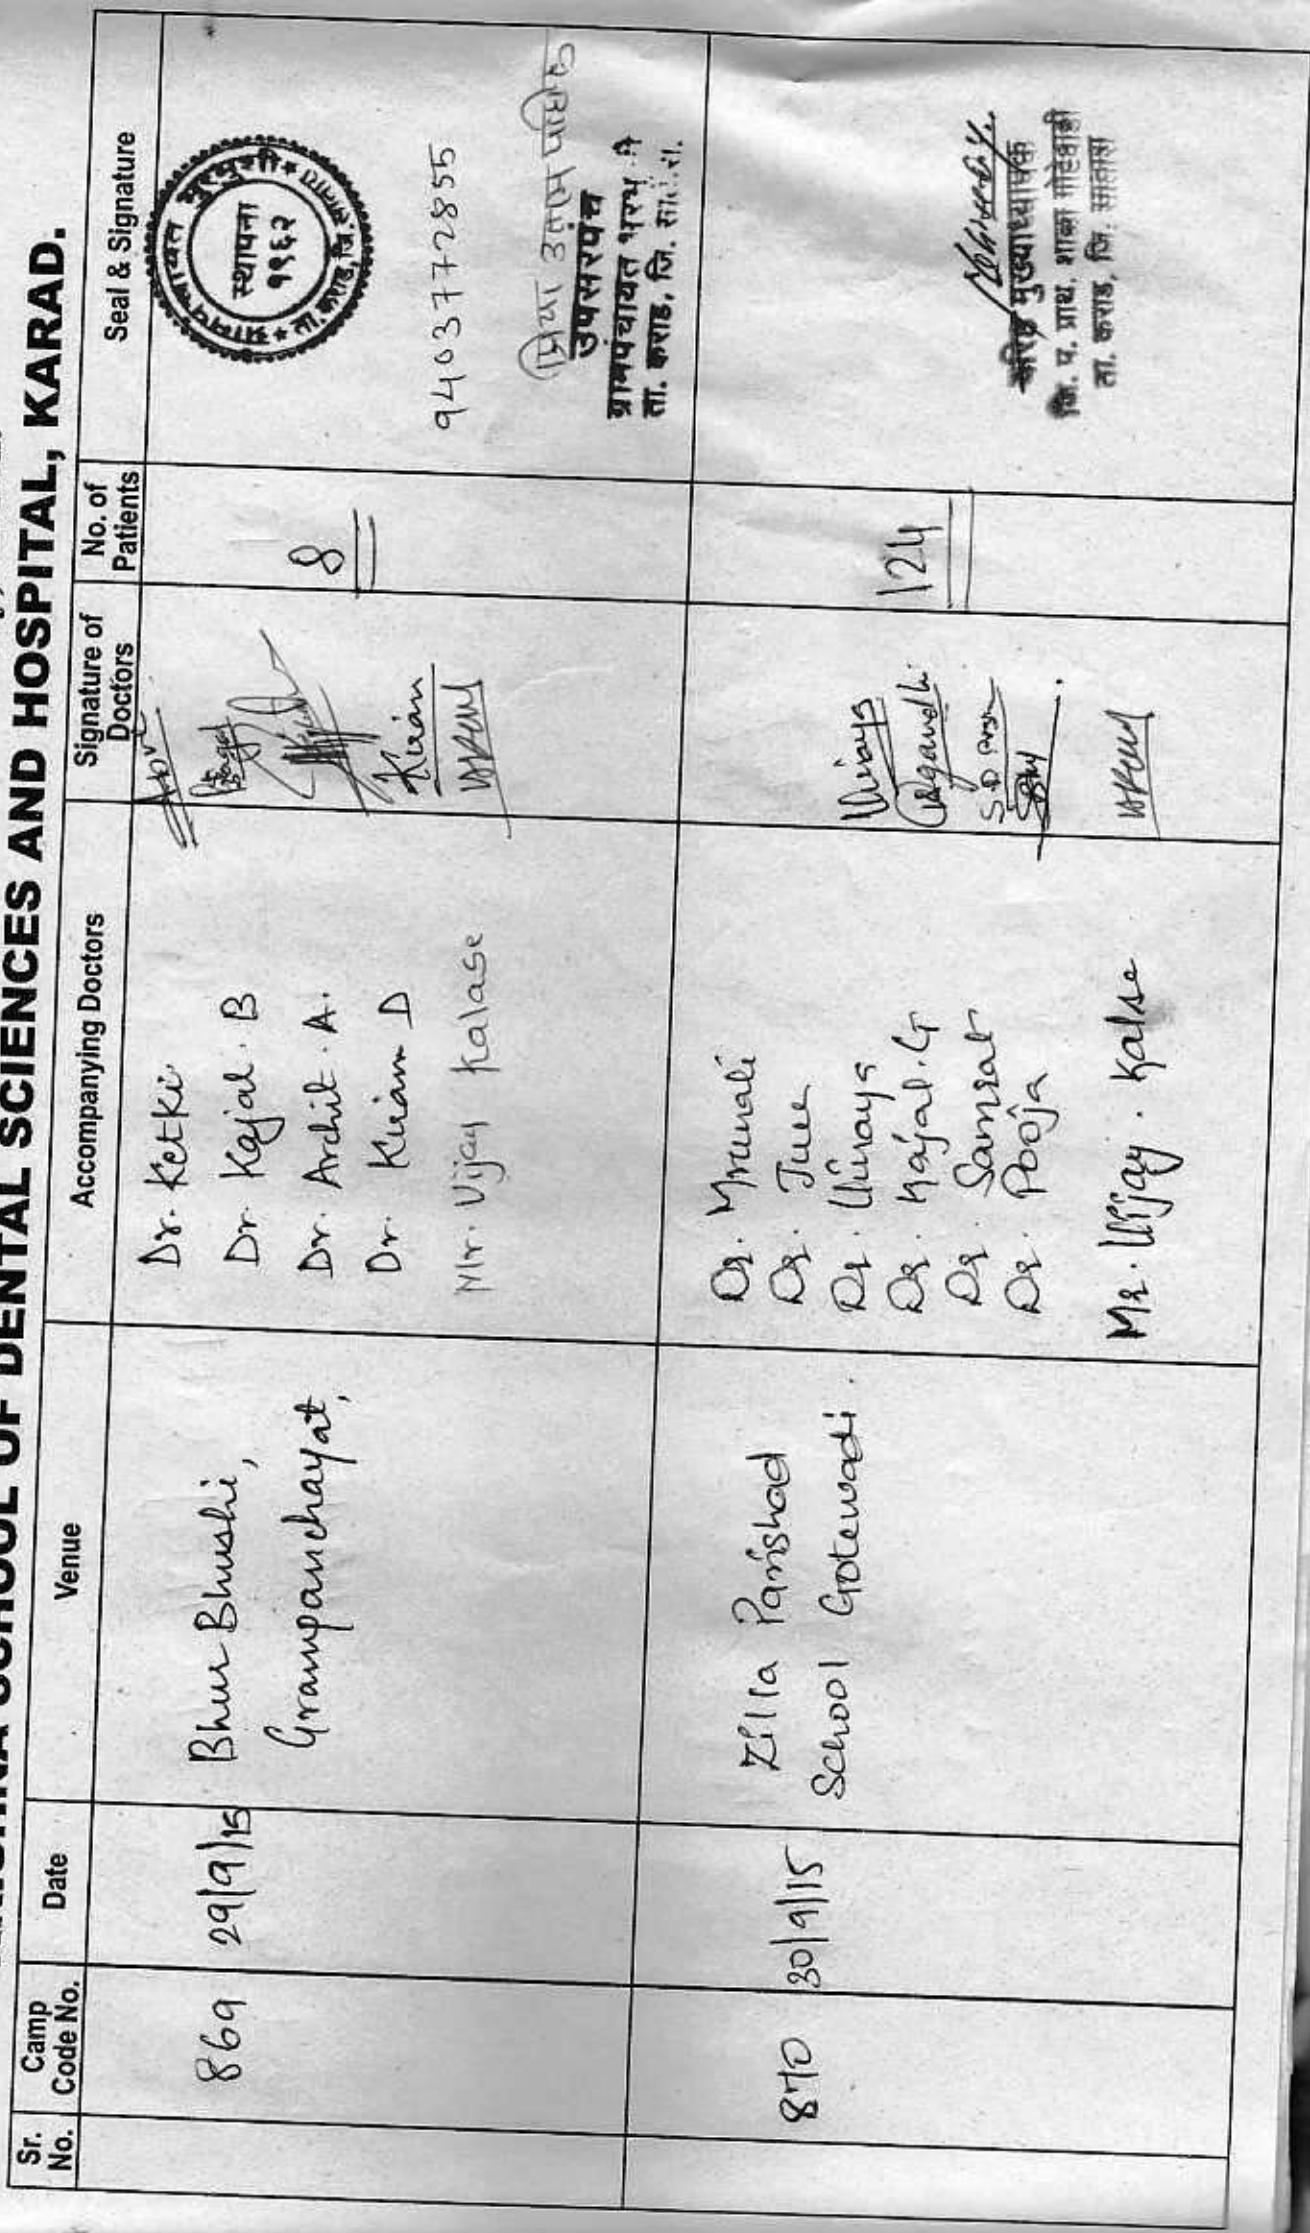 SCHOOL OF DENTAL SCIENCES AND HOSPITAL, KARAD.
Sr. No.
Camp Code No.
Date
Venue
Accompanying Doctors
Signature of Doctors
No. of Patients
Seal & Signature
869
29/9/15
Bhur Bhushi,
Grampanchayat,
Dr. Ketki
Dr. Kajal. B
Dr. Archit. A.
Dr. Kiran D
Mr. Vijay Kalase
Kiran
8
स्थापना
१९६२
ता. कराड, जि.
9403772855
उपसरपंच
ग्रामपंचायत
ता. कराड, जि.
870
30/9/15
Zilla Parishad
School Gotewadi.
Dr. Mrunali
Dr. Juee
Dr. Vinaya
Dr. Kajal. G
Dr Samrat
Dr. Pooja
Mr. Vijay. Kalse
Vinaya
124
मुख्याध्यापक
जि. प. प्राथ. शाळा गोटेवाडी
ता. कराड, जि. सातारा